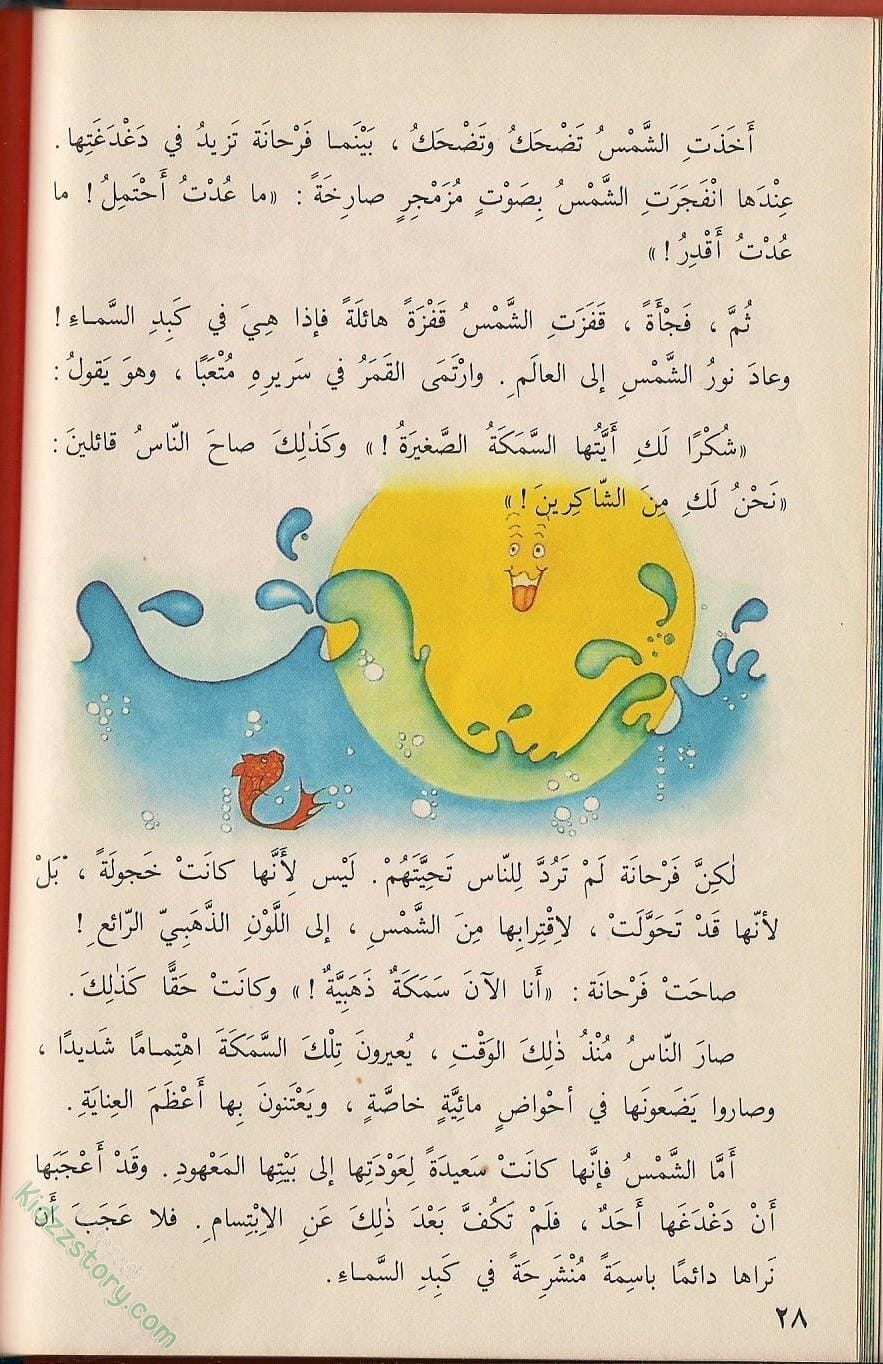 أَخَذَتِ الشَّمْسُ تَضْحَكُ وتَضْحَكُ ، بَيْنَما فَرْحانَة تَزيدُ في دَغْدَغَتِها .
عِنْدَها انْفَجَرَتِ الشَّمْسُ بِصَوْتٍ مُزَمْجِرٍ صارِخَةً : «ما عُدْتُ أَحْتَمِلُ! ما
عُدْتُ أَقْدِرُ!»
ثُمَّ ، فَجْأَةً ، قَفَزَتِ الشَّمْسُ قَفْزَةً هائلَةً فإذا هِيَ في كَبِدِ السَّماءِ!
وعادَ نورُ الشَّمْسِ إلى العالَمِ. وارْتَمَى القَمَرُ في سَريرِهِ مُتْعَبًا ، وهوَ يَقولُ :
«شُكْرًا لَكِ أَيَّتُها السَّمَكَةُ الصَّغيرَةُ!» وكَذٰلِكَ صاحَ النّاسُ قائلينَ :
«نَحْنُ لَكِ مِنَ الشّاكِرينَ!»
لٰكِنَّ فَرْحانَة لَمْ تَرُدَّ لِلنّاس تَحِيَّتَهُمْ. لَيْس لِأَنَّها كانَتْ خَجولَةً ، بَلْ
لأنّها قَدْ تَحَوَّلَتْ ، لاِقْتِرابِها مِنَ الشَّمْسِ ، إلى اللَّوْنِ الذَّهَبِيِّ الرّائعِ!
صاحَتْ فَرْحانَة : «أَنا الآنَ سَمَكَةٌ ذَهَبِيَّةٌ!» وكانَتْ حَقًّا كَذٰلِكَ.
صارَ النّاسُ مُنْذُ ذٰلِكَ الوَقْتِ ، يُعيرونَ تِلْكَ السَّمَكَةَ اهْتِمامًا شَديدًا ،
وصاروا يَضَعونَها في أحْواضٍ مائِيَّةٍ خاصَّةٍ ، ويَعْتَنونَ بِها أَعْظَمَ العِنايَةِ.
أَمَّا الشَّمْسُ فإنَّها كانَتْ سَعيدَةً لِعَوْدَتِها إلى بَيْتِها المَعْهودِ. وقَدْ أَعْجَبَها
أَنْ دَغْدَغَها أَحَدٌ ، فَلَمْ تَكُفَّ بَعْدَ ذٰلِكَ عَنِ الاِبْتِسامِ. فلا عَجَبَ أَن
نَراها دائمًا باسِمَةً مُنْشَرِحَةً في كَبِدِ السَّماءِ.
٢٨
Kidzzstory.com